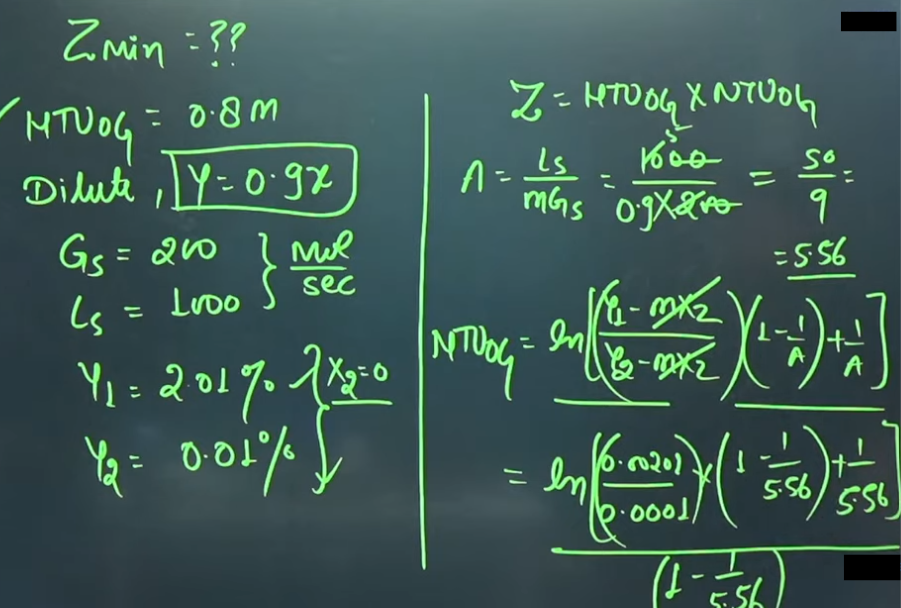 Zmin = ??
HTUOG = 0.8m
Dilute, Y = 0.9x
Gs = 200 } mol/sec
Ls = 1000
Y1 = 2.01% } X2=0
Y2 = 0.01%
Z = HTUOG X NTUOG
A = Ls/mGs = 1000/0.9X200 = 50/9 =
5
= 5.56
NTUOG = ln[(Y1 - mX2/Y2 - mX2)(1 - 1/A) + 1/A]
= ln[(0.0201/0.0001)x(1 - 1/5.56) + 1/5.56]
(1 - 1/5.56)